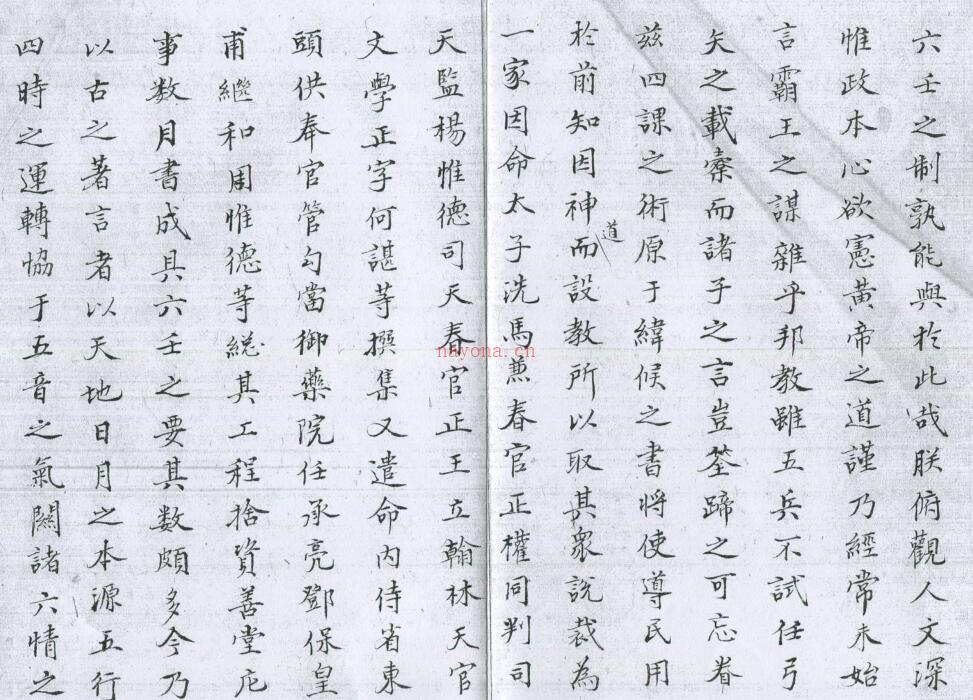 六壬之制孰能與於此哉朕俯觀人文深
惟政本心欲憲黃帝之道謹乃經常未始
言霸王之謀雜乎邦教雖五兵不試任弓
矢之載櫜而諸子之言豈筌蹄之可忘眷
茲四課之術原于緯候之書將使導民用
於前知因神道而設教所以取其衆說裁為
一家因命太子洗馬兼春官正權同判司
天監楊惟德司天春官正王立翰林天官
文學正字何諶等撰集又遣命内侍省東
頭供奉官管勾當御藥院任承亮鄧保皇
甫繼和周惟德等緫其工程捨資善堂庀
事数月書成具六壬之要其数頗多今乃
以古之著言者以天地日月之本源五行
四時之運轉協于五音之氣關諸六情之
nayona.cn